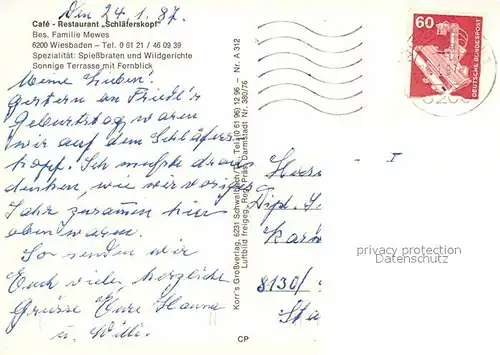 Den 24.1.87.
Café - Restaurant „Schläferskopf"
Bes. Familie Mewes
6200 Wiesbaden – Tel. 0 61 21 / 46 09 39
Spezialität: Spießbraten und Wildgerichte
Sonnige Terrasse mit Fernblick
Meine Lieben!
Gestern an Friedl's
Geburtstag waren
wir auf dem Schläfers
kopf. Ich mußte dran
denken, wie wir voriges
Jahr zusammen hier
oben waren.
So senden wir
Euch viele herzliche
Grüsse Eure Hanna
u. Willi.
Korr's Großverlag, 6231 Schwalbach/Ts., Tel. (0 61 96) 12 96 – Nr. A 312
Luftbild freigeg. Reg. Präs. Darmstadt Nr. 380/76
CP
60
DEUTSCHE BUNDESPOST
Dipl.
8130/
Sta
privacy protection
DATENSCHUTZ